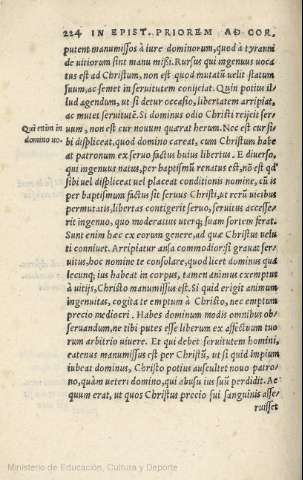 224 IN EPIST. PRIOREM AD COR.
putent manumissos à iure dominorum, quod à tyranni
de uitiorum sint manu mißi. Rursus qui ingenuus uoca
tus est ad Christum, non est quod mutatũ uelit statum
suum, ac semet in seruitutem conijciat. Quin potius il
lud agendum, ut si detur occasio, libertatem arripiat,
ac mutet seruitutẽ. Si dominus odio Christi reijcit ser=
uum, non est cur nouum quærat herum. Nec est cur si=
Qui enim in
domino uo.
bi displiceat, quod domino careat, cum Christum habe
at patronum ex seruo factus huius libertus. E diuerso,
qui ingenuus natus, per baptismũ renatus est, nõ est qd
sibi uel displiceat uel placeat conditionis nomine, cũ is
per baptismum factus sit seruus Christi, et rerũ uicibus
permutatis, libertas contigerit seruo, seruitus accesse=
rit ingenuo, quo moderatius uterq; suam sortem ferat.
Sunt enim hæc ex eorum genere, ad quæ Christus uelu
ti conniuet. Arripiatur ansa commodior, si grauat ser=
uitus, hoc nomine te consolare, quod licet dominus quæ
lecunq; ius habeat in corpus, tamen animus exemptus
à uitijs, Christo manumissus est. Si quid erigit animum
ingenuitas, cogita te emptum à Christo, nec emptum
precio mediocri. Habes dominum modis omnibus ob=
seruandum, ne tibi putes esse liberum ex affectuum tuo
rum arbitrio uiuere. Et qui debet seruitutem homini,
eatenus manumissus est per Christũ, ut si quid impium
iubeat dominus, Christo potius auscultet nouo patro=
no, quàm ueteri domino, qui abusu ius suũ perdidit. Ae
quum erat, ut quos Christus precio sui sanguinis asse=
ruisset
Ministerio de Educación, Cultura y Deporte